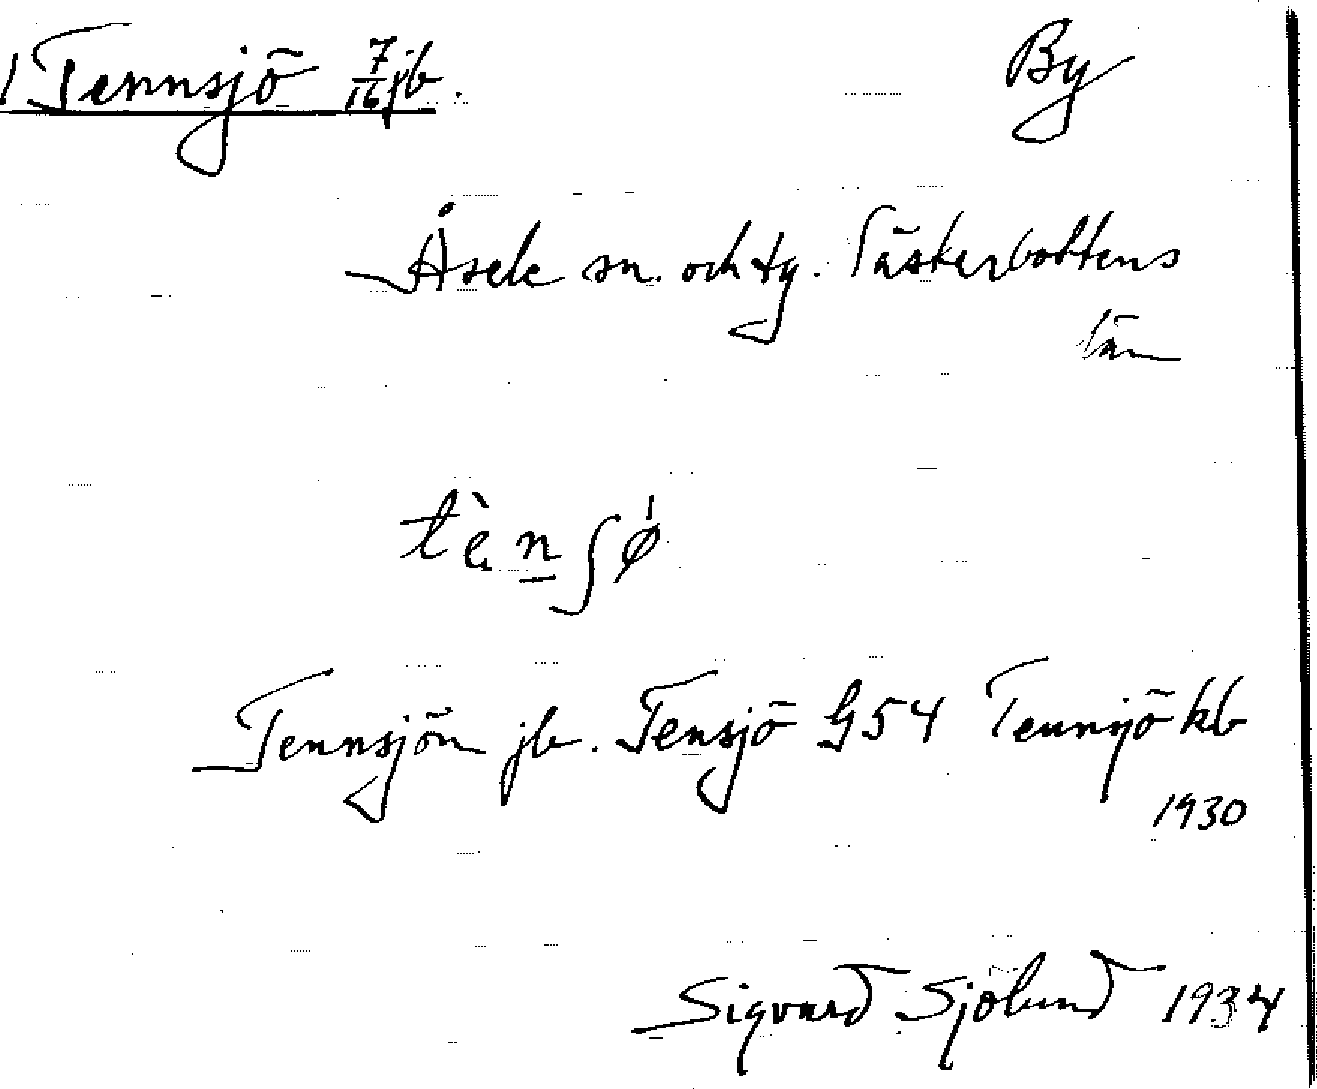 1 Tennsjö 7/16 jb. By
Åsele sn. och tg. Västerbottens
län
tènʃø̀
Tennsjön jb. Tensjö G54 Tennsjö kb
1930
Sigvard Sjölund 1934